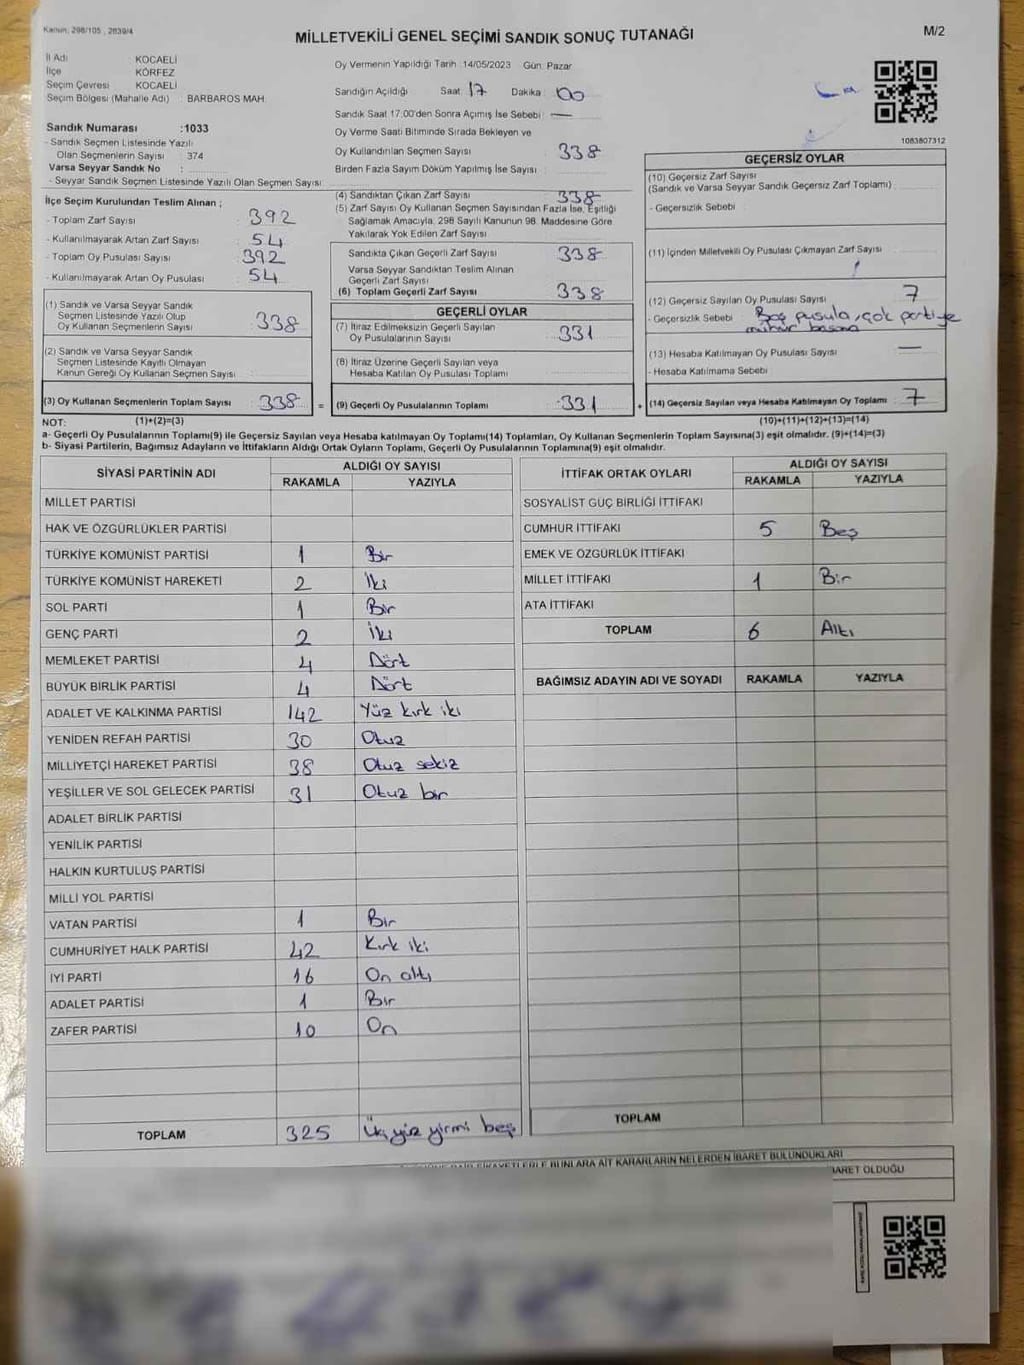 Kanun, 298/105 , 2839/4
MİLLETVEKİLİ GENEL SEÇİMİ SANDIK SONUÇ TUTANAĞI
M/2
İl Adı : KOCAELİ
İlçe : KÖRFEZ
Seçim Çevresi : KOCAELİ
Seçim Bölgesi (Mahalle Adı) : BARBAROS MAH.
Sandık Numarası :1033
- Sandık Seçmen Listesinde Yazılı
Olan Seçmenlerin Sayısı : 374
Varsa Seyyar Sandık No :
- Seyyar Sandık Seçmen Listesinde Yazılı Olan Seçmen Sayısı:
İlçe Seçim Kurulundan Teslim Alınan ;
- Toplam Zarf Sayısı : 392
- Kullanılmayarak Artan Zarf Sayısı : 54
- Toplam Oy Pusulası Sayısı : 392
- Kullanılmayarak Artan Oy Pusulası : 54
(1) Sandık ve Varsa Seyyar Sandık
Seçmen Listesinde Yazılı Olup
Oy Kullanan Seçmenlerin Sayısı : 338
(2) Sandık ve Varsa Seyyar Sandık
Seçmen Listesinde Kayıtlı Olmayan
Kanun Gereği Oy Kullanan Seçmen Sayısı :
(3) Oy Kullanan Seçmenlerin Toplam Sayısı : 338 =
Oy Vermenin Yapıldığı Tarih :14/05/2023 Gün: Pazar
Sandığın Açıldığı Saat: 17 Dakika : 00
Sandık Saat 17:00'den Sonra Açımış İse Sebebi : —
Oy Verme Saati Bitiminde Sırada Bekleyen ve
Oy Kullandırılan Seçmen Sayısı : 338
Birden Fazla Sayım Döküm Yapılmış İse Sayısı :
(4) Sandıktan Çıkan Zarf Sayısı : 338
(5) Zarf Sayısı Oy Kullanan Seçmen Sayısından Fazla İse, Eşitliği
Sağlamak Amacıyla, 298 Sayılı Kanunun 98. Maddesine Göre
Yakılarak Yok Edilen Zarf Sayısı
Sandıkta Çıkan Geçerli Zarf Sayısı : 338
Varsa Seyyar Sandıktan Teslim Alınan
Geçerli Zarf Sayısı
(6) Toplam Geçerli Zarf Sayısı : 338
GEÇERLİ OYLAR
(7) İtiraz Edilmeksizin Geçerli Sayılan
Oy Pusulalarının Sayısı : 331
(8) İtiraz Üzerine Geçerli Sayılan veya
Hesaba Katılan Oy Pusulası Toplamı :
(9) Geçerli Oy Pusulalarının Toplamı : 331 +
1083807312
GEÇERSİZ OYLAR
(10) Geçersiz Zarf Sayısı
(Sandık ve Varsa Seyyar Sandık Geçersiz Zarf Toplamı) :
- Geçersizlik Sebebi :
(11) İçinden Milletvekili Oy Pusulası Çıkmayan Zarf Sayısı
(12) Geçersiz Sayılan Oy Pusulası Sayısı : 7
- Geçersizlik Sebebi : Boş pusula, çok partiye
mühür basma
(13) Hesaba Katılmayan Oy Pusulası Sayısı : —
- Hesaba Katılmama Sebebi :
(14) Geçersiz Sayılan veya Hesaba Katılmayan Oy Toplamı : 7
NOT: (1)+(2)=(3) (10)+(11)+(12)+(13)=(14)
a- Geçerli Oy Pusulalarının Toplamı(9) ile Geçersiz Sayılan veya Hesaba katılmayan Oy Toplamı(14) Toplamları, Oy Kullanan Seçmenlerin Toplam Sayısına(3) eşit olmalıdır. (9)+(14)=(3)
b- Siyasi Partilerin, Bağımsız Adayların ve İttifakların Aldığı Ortak Oyların Toplamı, Geçerli Oy Pusulalarının Toplamına(9) eşit olmalıdır.
SİYASİ PARTİNİN ADI ALDIĞI OY SAYISI
RAKAMLA YAZIYLA
MİLLET PARTİSİ
HAK VE ÖZGÜRLÜKLER PARTİSİ
TÜRKİYE KOMÜNİST PARTİSİ 1 Bir
TÜRKİYE KOMÜNİST HAREKETİ 2 İki
SOL PARTİ 1 Bir
GENÇ PARTİ 2 İki
MEMLEKET PARTİSİ 4 Dört
BÜYÜK BİRLİK PARTİSİ 4 Dört
ADALET VE KALKINMA PARTİSİ 142 Yüz kırk iki
YENİDEN REFAH PARTİSİ 30 Otuz
MİLLİYETÇİ HAREKET PARTİSİ 38 Otuz sekiz
YEŞİLLER VE SOL GELECEK PARTİSİ 31 Otuz bir
ADALET BİRLİK PARTİSİ
YENİLİK PARTİSİ
HALKIN KURTULUŞ PARTİSİ
MİLLİ YOL PARTİSİ
VATAN PARTİSİ 1 Bir
CUMHURİYET HALK PARTİSİ 42 Kırk iki
İYİ PARTİ 16 On altı
ADALET PARTİSİ 1 Bir
ZAFER PARTİSİ 10 On
TOPLAM 325 Üç yüz yirmi beş
İTTİFAK ORTAK OYLARI ALDIĞI OY SAYISI
RAKAMLA YAZIYLA
SOSYALİST GÜÇ BİRLİĞİ İTTİFAKI
CUMHUR İTTİFAKI 5 Beş
EMEK VE ÖZGÜRLÜK İTTİFAKI
MİLLET İTTİFAKI 1 Bir
ATA İTTİFAKI
TOPLAM 6 Altı
BAĞIMSIZ ADAYIN ADI VE SOYADI RAKAMLA YAZIYLA
TOPLAM
BUNLARA AİT KARARLARIN NELERDEN İBARET BULUNDUKLARI
İBARET OLDUĞU